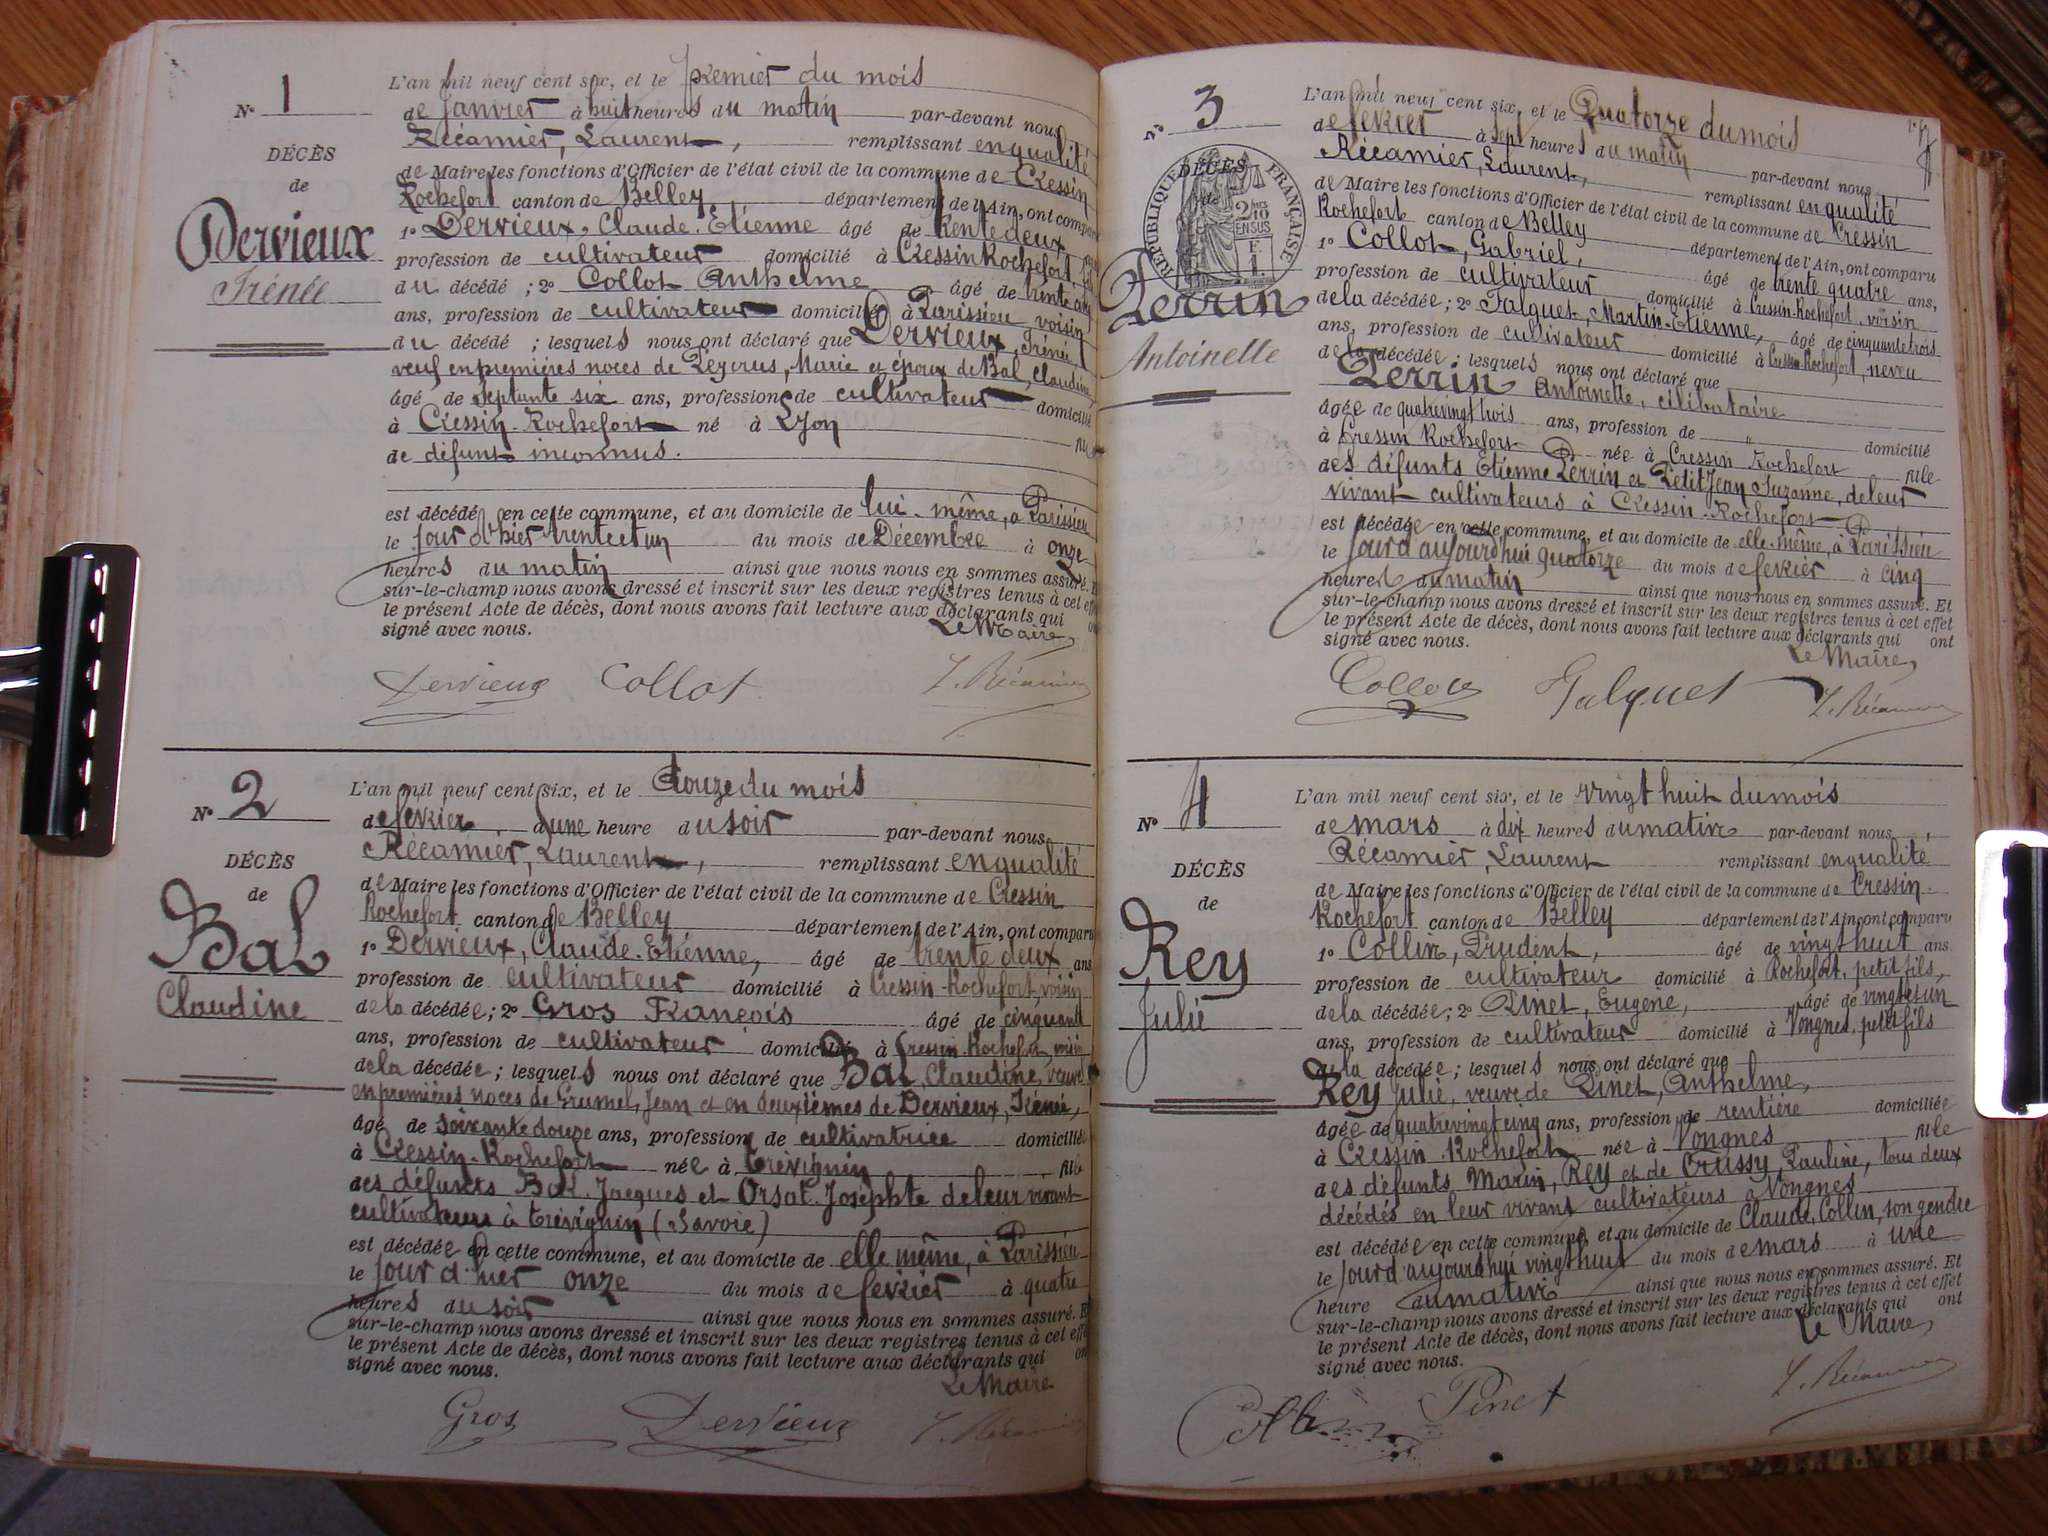 L'an mil neuf cent six, et le premier du mois
N° 1
de janvier à huit heures du matin par-devant nous
Récamier, Laurent, remplissant en qualité
DÉCÈS
de Maire les fonctions d'Officier de l'état civil de la commune de Cressin
de
Rochefort canton de Belley département de l'Ain, ont comparu
Dervieux
1° Dervieux, Claude-Etienne âgé de trente deux
profession de cultivateur domicilié à Cressin Rochefort
Irénée
du décédé; 2° Collot Anthelme âgé de trente
ans, profession de cultivateur domicilié à Parissieu voisin
du décédé; lesquels nous ont déclaré que Dervieux, Irénée,
veuf en premières noces de Marie et époux de Bal, Claudine
âgé de septante six ans, profession de cultivateur domicilié
à Cressin-Rochefort né à Lyon
de défunts inconnus.
est décédé en cette commune, et au domicile de lui-même, à Parissieu
le jour d'hier trente et un du mois de Décembre à onze
heures du matin ainsi que nous nous en sommes assuré.
sur-le-champ nous avons dressé et inscrit sur les deux registres tenus à cet
le présent Acte de décès, dont nous avons fait lecture aux déclarants qui
signé avec nous. Le Maire,
Dervieux Collot L. Récamier
L'an mil neuf cent six, et le douze du mois
N° 2
de fevrier à une heure du soir par-devant nous
Récamier, Laurent, remplissant en qualité
DÉCÈS
de Maire les fonctions d'Officier de l'état civil de la commune de Cressin
de
Rochefort canton de Belley département de l'Ain, ont comparu
Bal
1° Dervieux, Claude-Etienne, âgé de trente deux ans
profession de cultivateur domicilié à Cressin-Rochefort, voisin
Claudine
de la décédée; 2° Gros François âgé de cinquante
ans, profession de cultivateur domicilié à Cressin-Rochefort, voisin
de la décédée; lesquels nous ont déclaré que Bal, Claudine, veuve
en premières noces de Grumel, Jean et en deuxièmes de Dervieux, Irénée,
âgé de soixante douze ans, profession de cultivatrice domiciliée
à Cressin-Rochefort née à Trévignin fille
des défunts Bal Jacques et Orsat Josephte de leur vivant
cultivateurs à Trévighin (Savoie)
est décédée en cette commune, et au domicile de elle même, à Parissieu
le jour d'hier onze du mois de fevrier à quatre
heures du soir ainsi que nous nous en sommes assuré. Et
sur-le-champ nous avons dressé et inscrit sur les deux registres tenus à cet effet
le présent Acte de décès, dont nous avons fait lecture aux déclarants qui ont
signé avec nous. Le Maire
Gros Dervieux L. Récamier
L'an mil neuf cent six, et le Quatorze du mois
N° 3
de fevrier à sept heures du matin par-devant nous
Récamier, Laurent, remplissant en qualité
DÉCÈS
RÉPUBLIQUE FRANÇAISE
de Maire les fonctions d'Officier de l'état civil de la commune de Cressin
Rochefort canton de Belley département de l'Ain, ont comparu
1° Collot, Gabriel, âgé de trente quatre ans,
Perrin
profession de cultivateur domicilié à Cressin-Rochefort, voisin
de la décédée; 2° Falquet, Martin-Etienne, âgé de cinquante trois
Antoinette
ans, profession de cultivateur domicilié à Cressin-Rochefort, neveu
de la décédée; lesquels nous ont déclaré que
Perrin Antoinette, célibataire
âgée de quatre vingt trois ans, profession de " domicilié
à Cressin Rochefort née à Cressin Rochefort fille
des défunts Etienne Perrin et PetitJean Suzanne, de leur
vivant cultivateurs à Cressin-Rochefort
est décédée en cette commune, et au domicile de elle-même, à Parissieu
le jour d'aujourd'hui quatorze du mois de fevrier à cinq
heures du matin ainsi que nous nous en sommes assuré. Et
sur-le-champ nous avons dressé et inscrit sur les deux registres tenus à cet effet
le présent Acte de décès, dont nous avons fait lecture aux déclarants qui ont
signé avec nous. Le Maire,
Collot Falquet L. Récamier
L'an mil neuf cent six, et le vingt huit du mois
N° 4
de mars à dix heures du matin par-devant nous
Récamier, Laurent remplissant en qualité
DÉCÈS
de Maire les fonctions d'Officier de l'état civil de la commune de Cressin
de
Rochefort canton de Belley département de l'Ain, ont comparu
Rey
1° Collin, Prudent, âgé de vingt huit ans
profession de cultivateur domicilié à Rochefort, petit fils,
Julie
de la décédée; 2° Pinet, Eugene, âgé de vingt et un
ans, profession de cultivateur domicilié à Vongnes, petit fils
de la décédée; lesquels nous ont déclaré que
Rey Julie, veuve de Pinet, Anthelme,
âgée de quatre vingt cinq ans, profession de rentière domiciliée
à Cressin-Rochefort née à Vongnes fille
des défunts Marin, Rey et de Crussy, Pauline, tous deux
décédés en leur vivant cultivateurs à Vongnes
est décédée en cette commune, et au domicile de Claude, Collin, son gendre
le jour d'aujourd'hui vingt huit du mois de mars à une
heure du matin ainsi que nous nous en sommes assuré. Et
sur-le-champ nous avons dressé et inscrit sur les deux registres tenus à cet effet
le présent Acte de décès, dont nous avons fait lecture aux déclarants qui ont
signé avec nous. Le Maire,
Collin Pinet L. Récamier